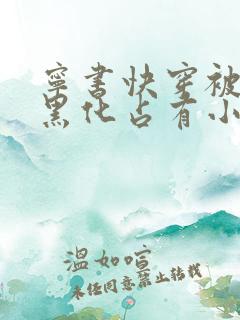 寧书快穿被
黑化占有小
温如暄
未经同意禁止转载